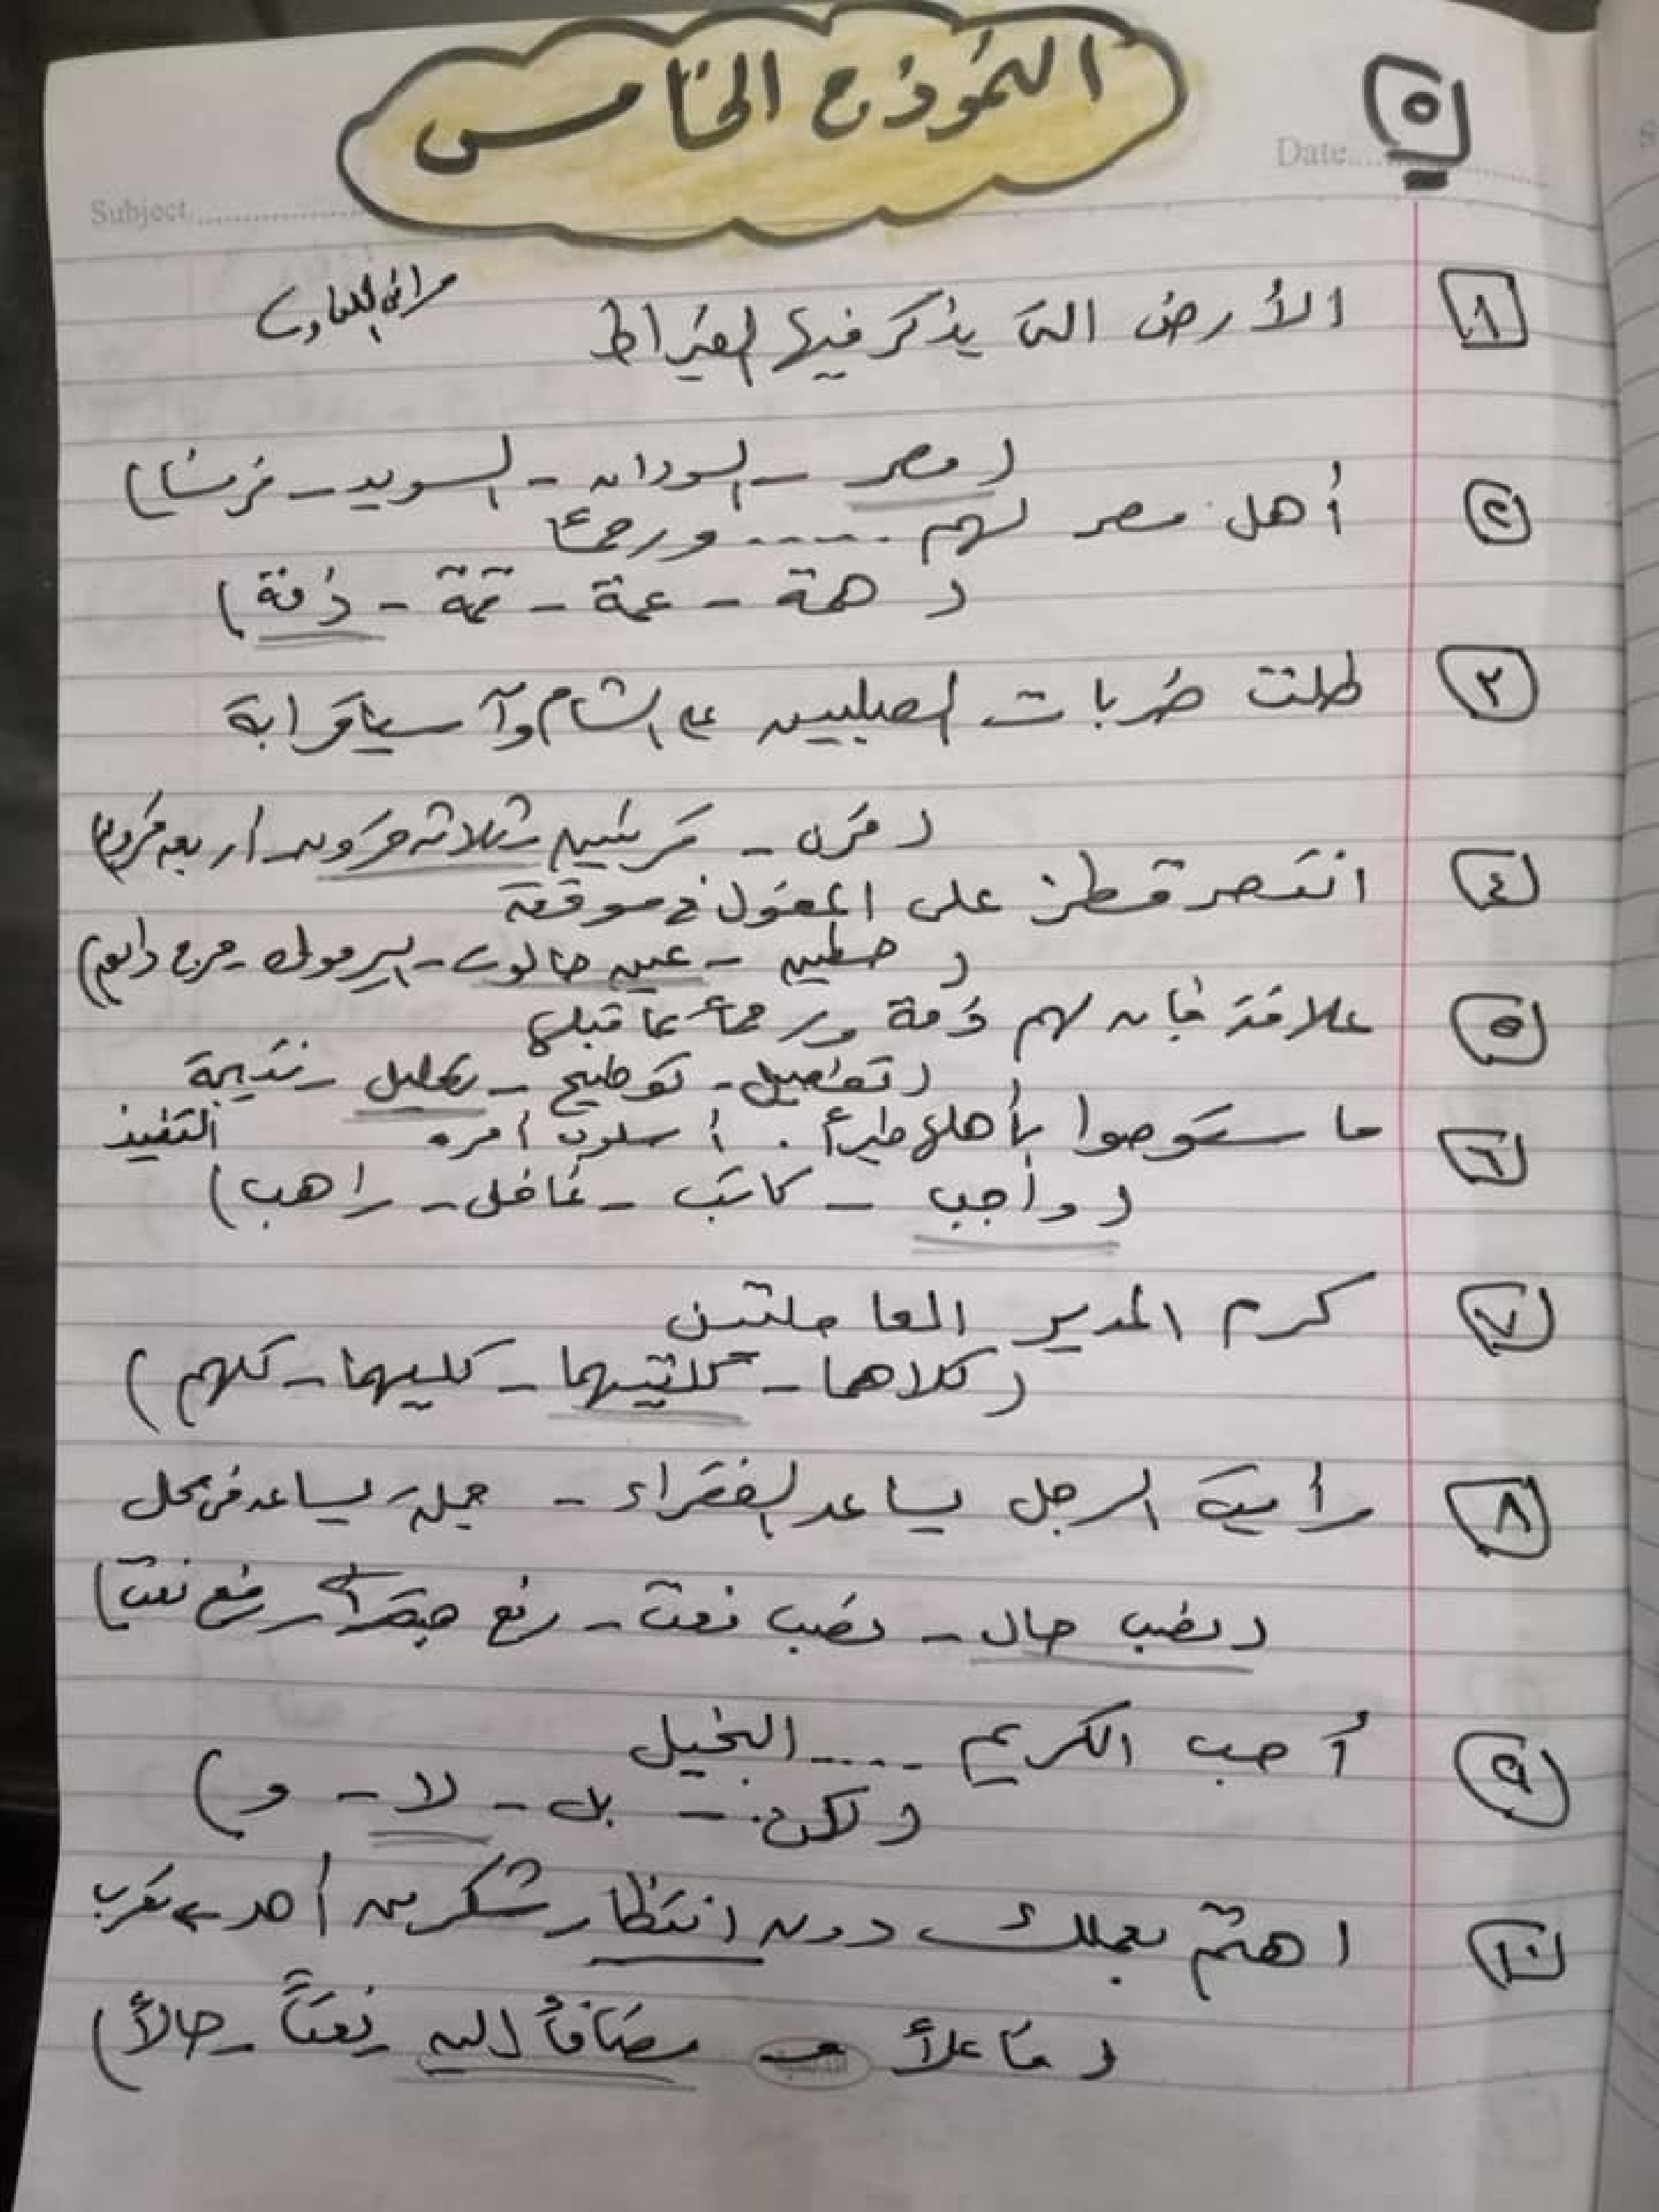 النموذج الخامس
٥
Date
Subject
١ الأرض التى يذكر فيها القيراط
(مصر - السودان - السويد - فرنسا)
٢ أهل مصر لهم ...... ورحمًا
(همة - عمة - تمة - ذمة)
٣ ظلت ضربات الصليبيين على الشام وآسيا قرابة
(قرن - قرنين - ثلاثة قرون - أربعة قرون)
٤ انتصر قطز على المغول فى موقعة
(حطين - عين جالوت - اليرموك - مرج دابق)
٥ علاقة فإن لهم ذمة ورحمًا بما قبلها
(تفصيل - توضيح - تعليل - نتيجة
٦ فاستوصوا بأهلها خيرًا. أسلوب أمر. التنفيذ
(واجب - كاتب - غافل - راهب)
٧ كرم المدير العاملتين
(كلاهما - كلتيهما - كليهما - كلهم)
٨ رأيت الرجل يساعد الفقراء - جملة يساعد فى محل
(نصب حال - نصب نعت - رفع خبر - رفع نعت)
٩ أحب الكريم ..... البخيل
(لكن - بل - لا - و)
١٠ اهتم بعملك دون انتظار شكر من أحد تعرب
(فاعلًا - مضافًا إليه - نعتًا - حالًا)